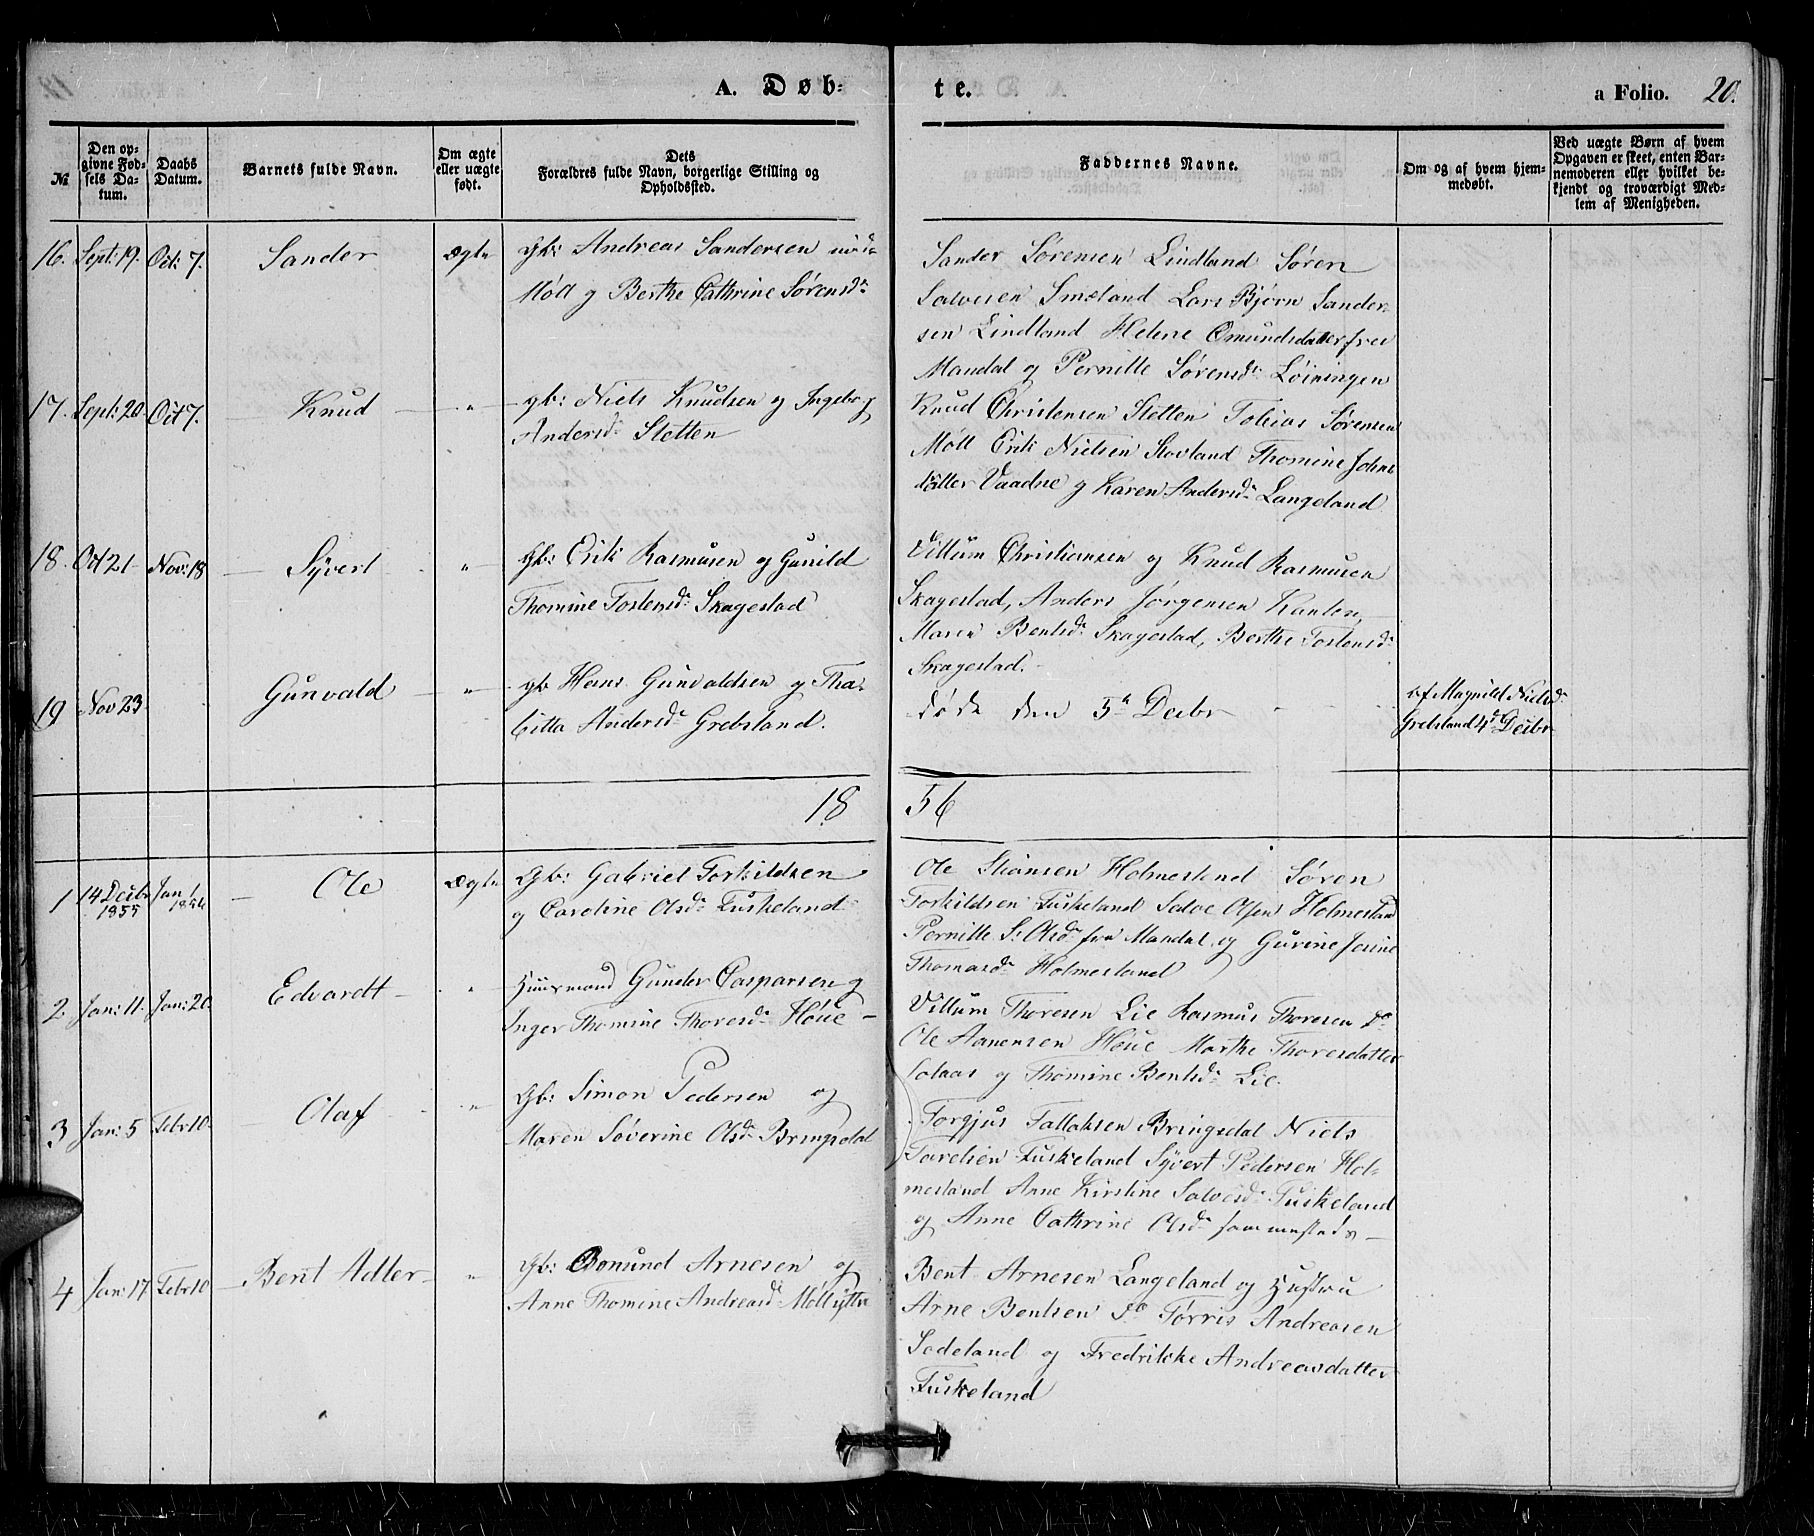 A. Døb-
te.
a Folio. 20.
№
Den op-
givne Fød-
sels Da-
tum.
Daabs
Datum.
Barnets fulde Navn.
Om ægte
eller uægte
født.
Dets
Forældres fulde Navn, borgerlige Stilling og
Opholdssted.
Faddernes Navne.
Om og af hvem hjem-
medøbt.
Ved uægte Børn af hvem
Opgaven er skeet, enten Bar-
nemoderen eller hvilket be-
kjendt og troværdigt Med-
lem af Menigheden.
16. Sept: 19. Oct: 7. Sander Ægte Gb: Andreas Sandersen
Møll og Berthe Cathrine Sørensdr
Sander Sørensen Lindland Søren
Salvesen Smeland Lars Bjørn Sander-
sen Lindland Helene Omundsdatter fra
Mandal og Pernille Sørensdr Løiningen
17. Sept: 20. Oct 7. Knud " gb: Niels Knudsen og Ingeborg
Andersdr Stetten
Knud Christensen Stetten Tobias Sørensen
Møll Erik Nielsen Stovland Thomine Johns
datter Vaadne og Karen Andersdr Langeland
18. Oct 21 Nov: 18 Syvert " Gb: Erik Rasmusen og Gunild
Thomine Tostensdr Skagestad
Villum Christiansen og Knud Rasmusen
Skagestad, Anders Jørgensen Kanten,
Maren Bentsdr Skagestad, Berthe Tostensdr
Skagestad.
19 Nov 23 Gunvald " gb Hans Gunvaldsen og Tha-
bitta Andersdr Grebsland.
døde den 5te Decbr
af Magnild Nielsdr
Grebsland 4de Decbr
18 56
1 14 Decbr 1855 Jan 1 1856 Ole Ægte Gb: Gabriel Torkildsen
og Caroline Olsdr Tuskeland
Ole Stiansen Holmesland Søren
Torkildsen Tuskeland Salve Olsen Holmesland
Pernille S: Olsdr fra Mandal og Gurine Josine
Thomasdr Holmesland
2. Jan: 11. Jan: 20. Edvardt " Huusmand Gunder Casparsen og
Inger Thomine Thoresdr Høue
Villum Thoresen Lie Rasmus Thoresen do
Ole Aanensen Høue Marthe Thoresdatter
Solaas og Thomine Bentsdr Lie.
3 Jan: 5 Febr 10. Olaf " Gb: Simon Pedersen og
Maren Søverine Olsdr Bringsdal
Torgjus Tallaksen Bringsdal Niels
Tarelsen Tuskeland Syvert Pedersen Hol-
mesland Anne Kirstine Salvesdr Tuskeland
og Anne Cathrine Olsdr sammesteds
4 Jan: 17. Febr 10 Berit Adler " Gb: Omund Arnesen og
Anne Thomine Andreasdr Møll ytre
Bent Arnesen Langeland og Hustru
Arne Bentsen do Tørris Andreasen
Sodeland og Fredrikke Andreasdatter
Tuskeland